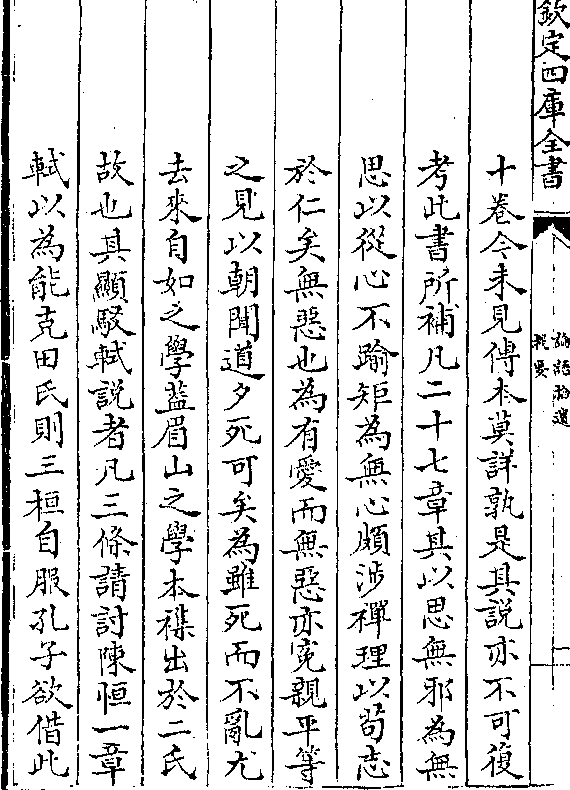 欽定四庫全書
論語拾遺
提要
十卷今未見傳本莫詳孰是其說亦不可復
考此書所補凡二十七章其以思無邪為無
思以從心不踰矩為無心頗涉禪理以苟志
於仁矣無惡也為有愛而無惡亦寃親平等
之見以朝聞道夕死可矣為雖死而不亂尤
去來自如之學葢眉山之學本襍出於二氏
故也其顯駁軾說者凡三條請討陳恒一章
軾以為能克田氏則三桓自服孔子欲借此
一